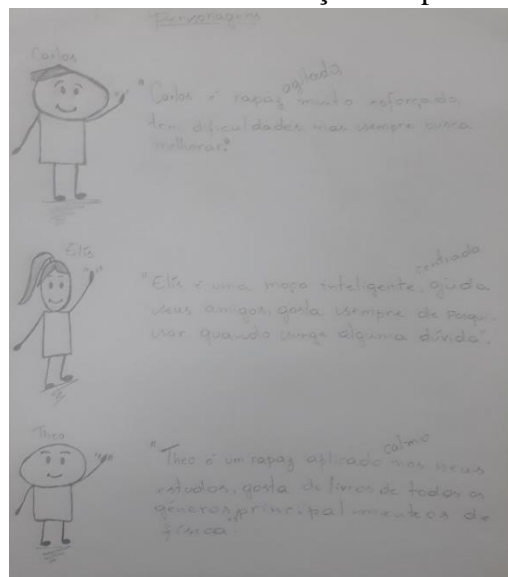 Personagens
Carlos
agitado
"Carlos é rapaz muito esforçado,
tem dificuldades mas sempre busca
melhorar."
Elis
centrada
"Elis é uma moça inteligente, ajuda
seus amigos, gosta sempre de pesqui-
sar quando surge alguma dúvida".
Theo
calmo
"Theo é um rapaz aplicado nos seus
estudos, gosta de livros de todos os
gêneros principalmente os de
física."